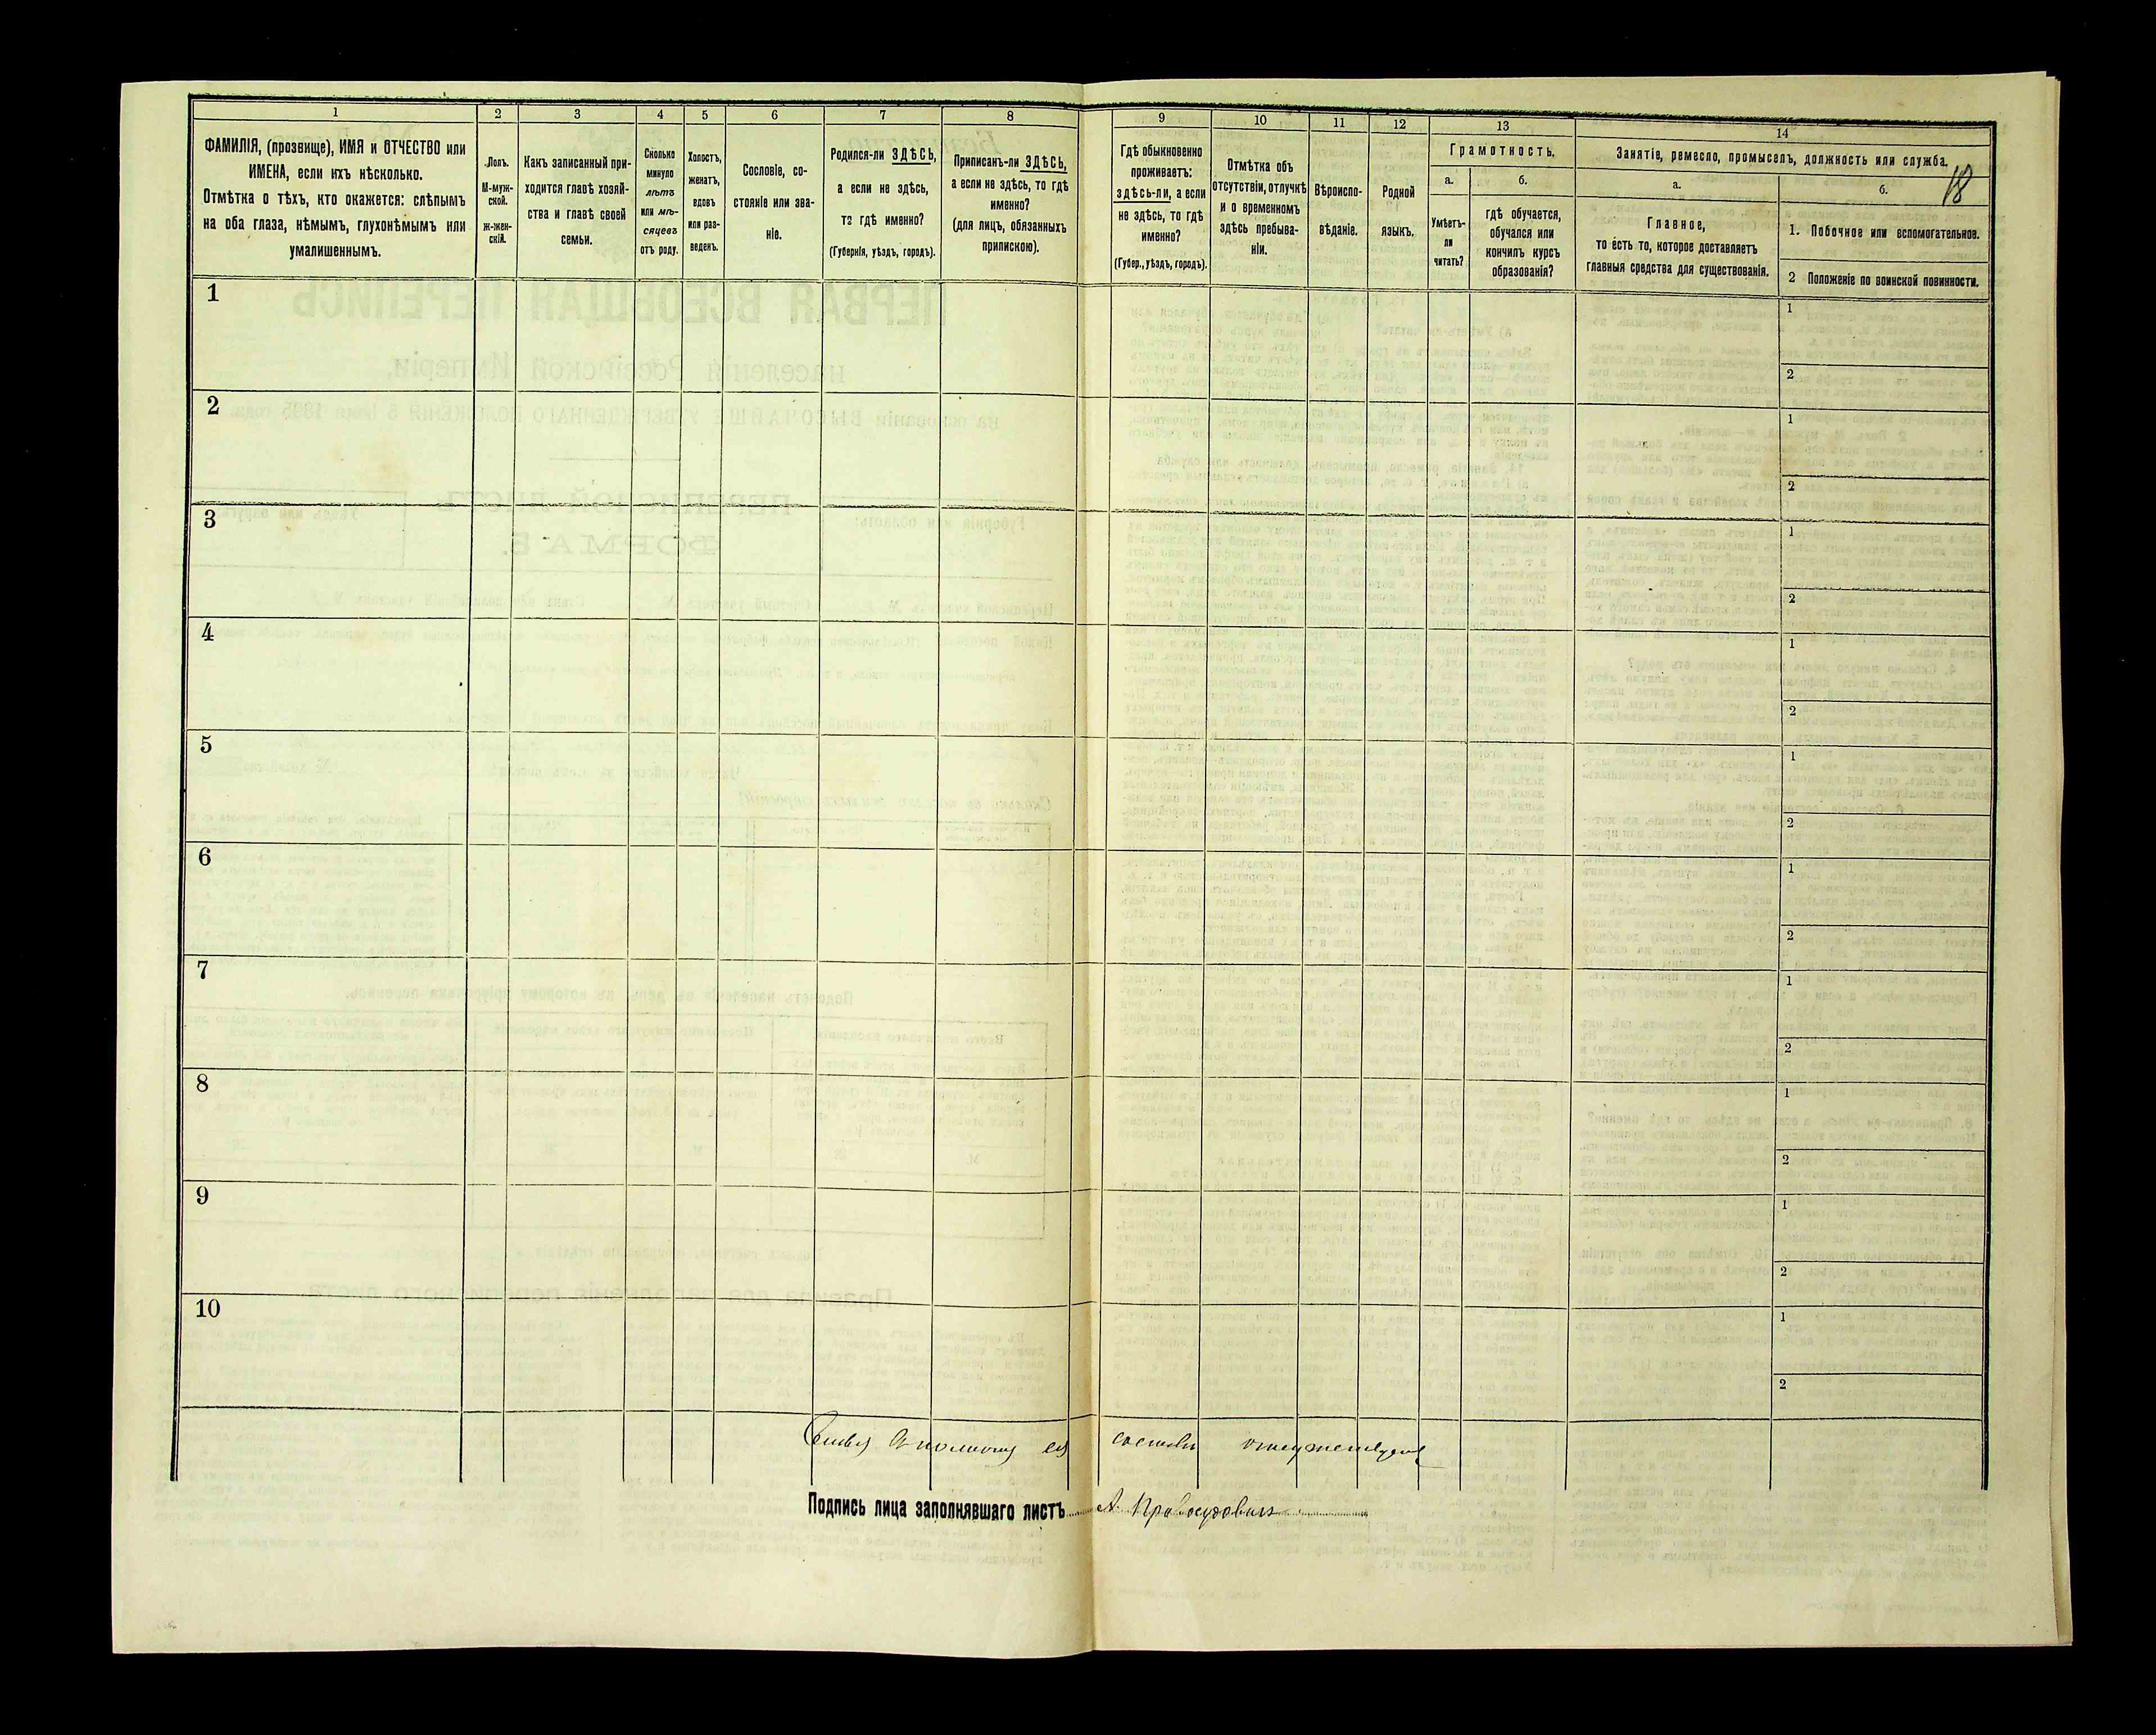 1 2 3 4 5 6 7 8 9 10 11 12 13 14
ФАМИЛІЯ, (прозвище), ИМЯ и ОТЧЕСТВО или
ИМЕНА, если ихъ нѣсколько.
Отмѣтка о тѣхъ, кто окажется: слѣпымъ
на оба глаза, нѣмымъ, глухонѣмымъ или
умалишеннымъ.
Полъ.
М-муж-
ской.
ж-жен-
скій.
Какъ записанный при-
ходится главѣ хозяй-
ства и главѣ своей
семьи.
Сколько
минуло
лѣтъ
или мѣ-
сяцевъ
отъ роду.
Холостъ,
женатъ,
вдовъ
или раз-
веденъ.
Сословіе, со-
стояніе или зва-
ніе.
Родился-ли ЗДѢСЬ,
а если не здѣсь,
то гдѣ именно?
(Губернія, уѣздъ, городъ).
Приписанъ-ли ЗДѢСЬ,
а если не здѣсь, то гдѣ
именно?
(для лицъ, обязанныхъ
припискою).
Гдѣ обыкновенно
проживаетъ:
здѣсь-ли, а если
не здѣсь, то гдѣ
именно?
(Губер., уѣздъ, городъ).
Отмѣтка объ
отсутствіи, отлучкѣ
и о временномъ
здѣсь пребыва-
ніи.
Вѣроиспо-
вѣданіе.
Родной
языкъ.
Грамотность.
а.
Умѣетъ-
ли
читать?
б.
гдѣ обучается,
обучался или
кончилъ курсъ
образованія?
Занятіе, ремесло, промыселъ, должность или служба.
18
а.
Главное,
то есть то, которое доставляетъ
главныя средства для существованія.
б.
1. Побочное или вспомогательное.
2 Положеніе по воинской повинности.
1
1
2
2
1
2
3
1
2
4
1
2
5
1
2
6
1
2
7
1
2
8
1
2
9
1
2
10
1
2
Подпись лица заполнявшаго листъ А.